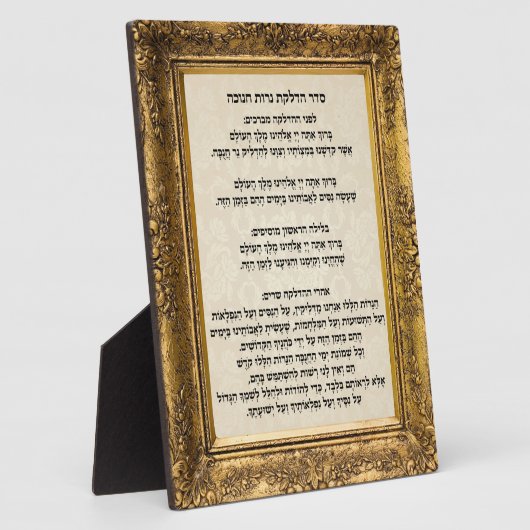 סדר הדלקת נרות חנוכה
לפני ההדלקה מברכים:
בָּרוּךְ אַתָּה יְיָ אֱלֹהֵינוּ מֶלֶךְ הָעוֹלָם
אֲשֶׁר קִדְּשָׁנוּ בְּמִצְוֹתָיו וְצִוָּנוּ לְהַדְלִיק נֵר חֲנֻכָּה.
בָּרוּךְ אַתָּה יְיָ אֱלֹהֵינוּ מֶלֶךְ הָעוֹלָם
שֶׁעָשָׂה נִסִּים לַאֲבוֹתֵינוּ בַּיָּמִים הָהֵם בַּזְּמַן הַזֶּה.
בלילה הראשון מוסיפים:
בָּרוּךְ אַתָּה יְיָ אֱלֹהֵינוּ מֶלֶךְ הָעוֹלָם
שֶׁהֶחֱיָנוּ וְקִיְּמָנוּ וְהִגִּיעָנוּ לַזְּמַן הַזֶּה.
אחרי ההדלקה שרים:
הַנֵּרוֹת הַלָּלוּ אֲנַחְנוּ מַדְלִיקִין, עַל הַנִּסִּים וְעַל הַנִּפְלָאוֹת
וְעַל הַתְּשׁוּעוֹת וְעַל הַמִּלְחָמוֹת, שֶׁעָשִׂיתָ לַאֲבוֹתֵינוּ בַּיָּמִים
הָהֵם בַּזְּמַן הַזֶּה עַל יְדֵי כֹּהֲנֶיךָ הַקְּדוֹשִׁים.
וְכָל שְׁמוֹנַת יְמֵי הַחֲנֻכָּה הַנֵּרוֹת הַלָּלוּ קֹדֶשׁ
הֵם וְאֵין לָנוּ רְשׁוּת לְהִשְׁתַּמֵּשׁ בָּהֶם,
אֶלָּא לִרְאוֹתָם בִּלְבַד, כְּדֵי לְהוֹדוֹת וּלְהַלֵּל לְשִׁמְךָ הַגָּדוֹל
עַל נִסֶּיךָ וְעַל נִפְלְאוֹתֶיךָ וְעַל יְשׁוּעָתֶךָ.